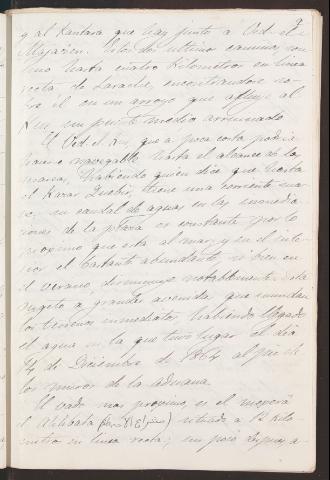 7
y al Kantara que hay junto a Ued el
Majacen. Estos dos ultimos caminos son
uno hasta cuatro kilometros en linea
recta de Larache, encontrandose so-
bre él en un arroyo que afluye al
Kus, un puente medio arruinado
El Ued el Kus, que a poca costa podria
hacerse navegable hasta el alcance de las
mareas, habiendo quien dice que hasta
el Kazar Quebir, tiene una corriente sua-
ve, su caudal de aguas en las inmedia
ciones de la plaza es constante por lo
proximo que está al mar, y en el inte-
rior el bastante abundante, si bien en
el verano, disminuye notablemente. Está
sugeto a grandes avenidas que inundan
los terrenos inmediatos habiendo llegado
el agua en la que tuvo lugar el dia
14 de Diciembre de 1864 al pie de
los muros de la aduana.
El vado mas proximo, es el
el situado a 12 kilo-
metros en linea recta; un poco lejos, a-